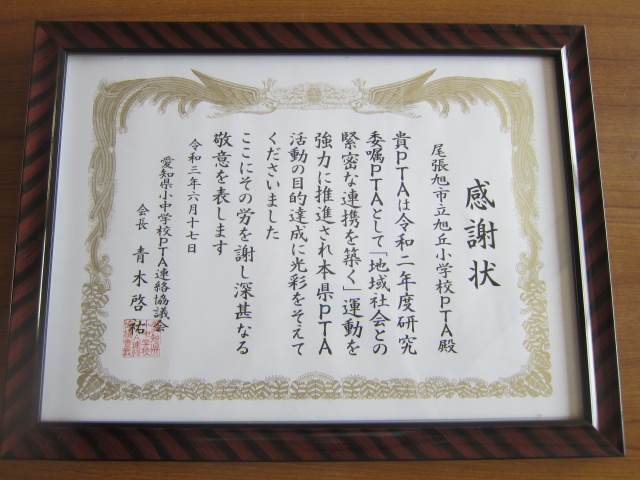 感謝状
尾張旭市立旭丘小学校PTA殿
貴PTAは令和二年度研究
委嘱PTAとして「地域社会との
緊密な連携を築く」運動を
強力に推進され本県PTA
活動の目的達成に光彩をそえて
くださいました
ここにその労を謝し深甚なる
敬意を表します
令和三年六月十七日
愛知県小中学校PTA連絡協議会
会長 青木啓祐